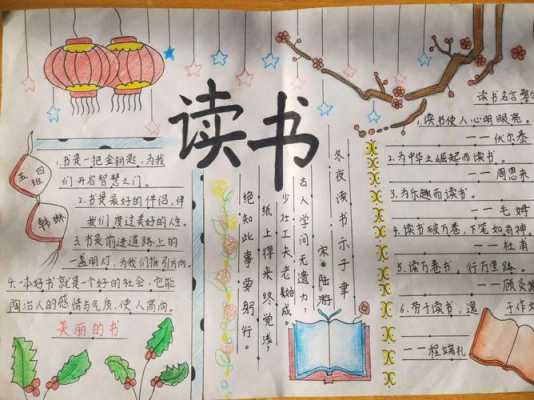 读书
五四班
韩琳
1.书是一把金钥匙,为我
们开启智慧之门。
2.书是最好的伴侣,伴
我们度过美好的人生。
3.书是前进道路上的
一盏明灯,为我们指引方向。
4.一本好书就是一个好的社会,它能
陶冶人的感情与气质,使人高尚。
美丽的书
冬夜读书示子聿
宋·陆游
古人学问无遗力,
少壮工夫老始成。
纸上得来终觉浅,
绝知此事要躬行。
读书名言警句
1.读书使人心明眼亮。
——伏尔泰
2.为中华之崛起而读书。
——周恩来
3.为乐趣而读书。
——毛姆
4.读书破万卷,下笔如有神。
——杜甫
5.读万卷书,行万里路。
——顾炎武
6.劳于读书,逸
于作文
——程端礼